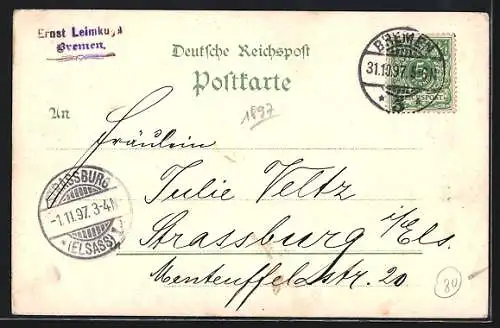 Ernst Leimkugel
Bremen.
Deutsche Reichspost
Postkarte
An
1897
BREMEN
31.10.97. 5-6N
5
REICHSPOST
Fräulein
Julie Veltz
Strassburg i/Els.
Menteuffelstr. 20.
STRASSBURG
-1.11.97. 3-4N
*(ELSASS)*
80